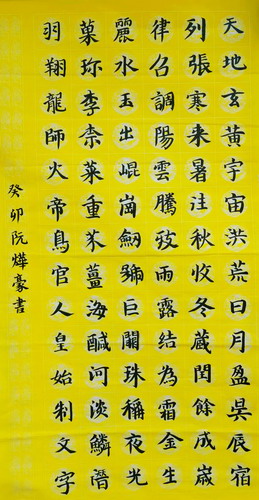 天地玄黃宇宙洪荒日月盈昃辰宿
列張寒来暑往秋收冬蔵閏餘成嵗
律召調陽雲騰致雨露結為霜金生
麗水玉出崐崗劒號巨闕珠稱夜光
菓珍李柰菜重芥薑海鹹河淡鱗潛
羽翔龍師火帝鳥官人皇始制文字
癸卯阮燁豪書